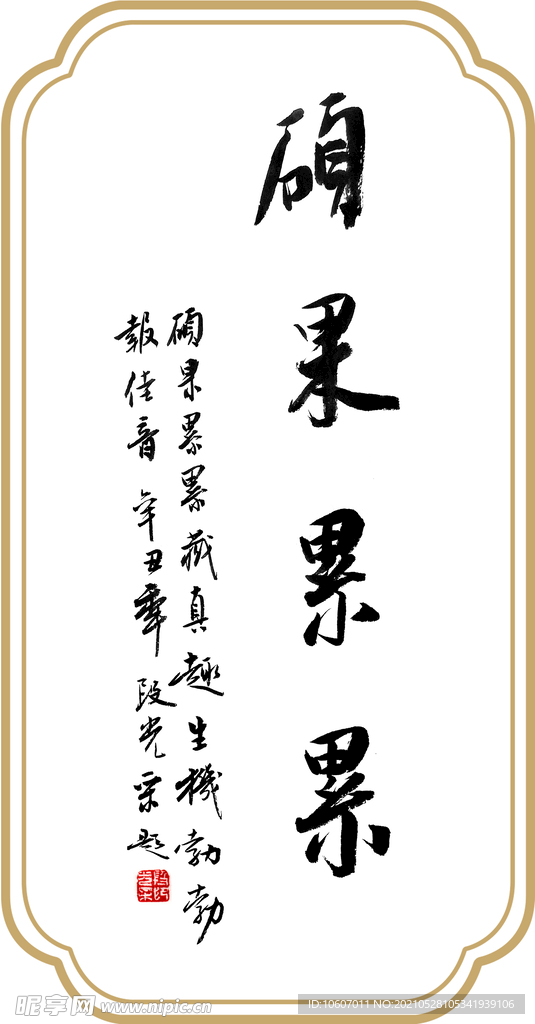 碩果累累
碩果累累藏真趣生機勃勃
報佳音 辛丑年 段光荣題
昵享网 www.nipic.cn
ID:10607011 NO:20210528105341939106